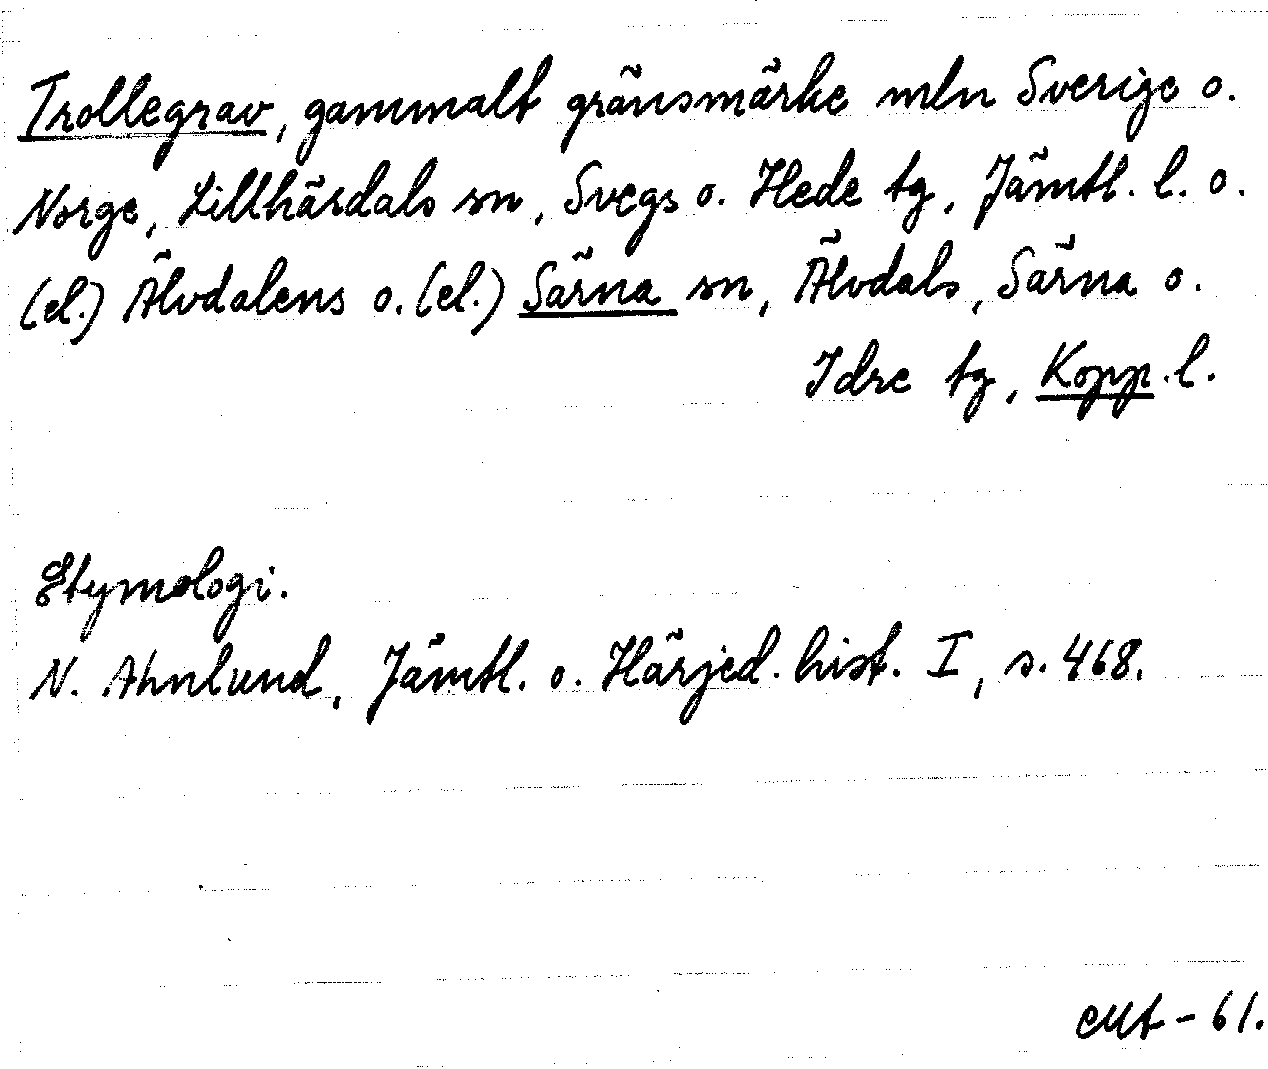 Trollegrav, gammalt gränsmärke mln Sverige o.
Norge, Lillhärdals sn, Svegs o. Hede tg, Jämtl. l. o.
(el.) Älvdalens o. (el.) Särna sn, Älvdals, Särna o.
Idre tg, Kopp. l.
Etymologi.
N. Ahnlund, Jämtl. o. Härjed. hist. I, s. 468.
-61.